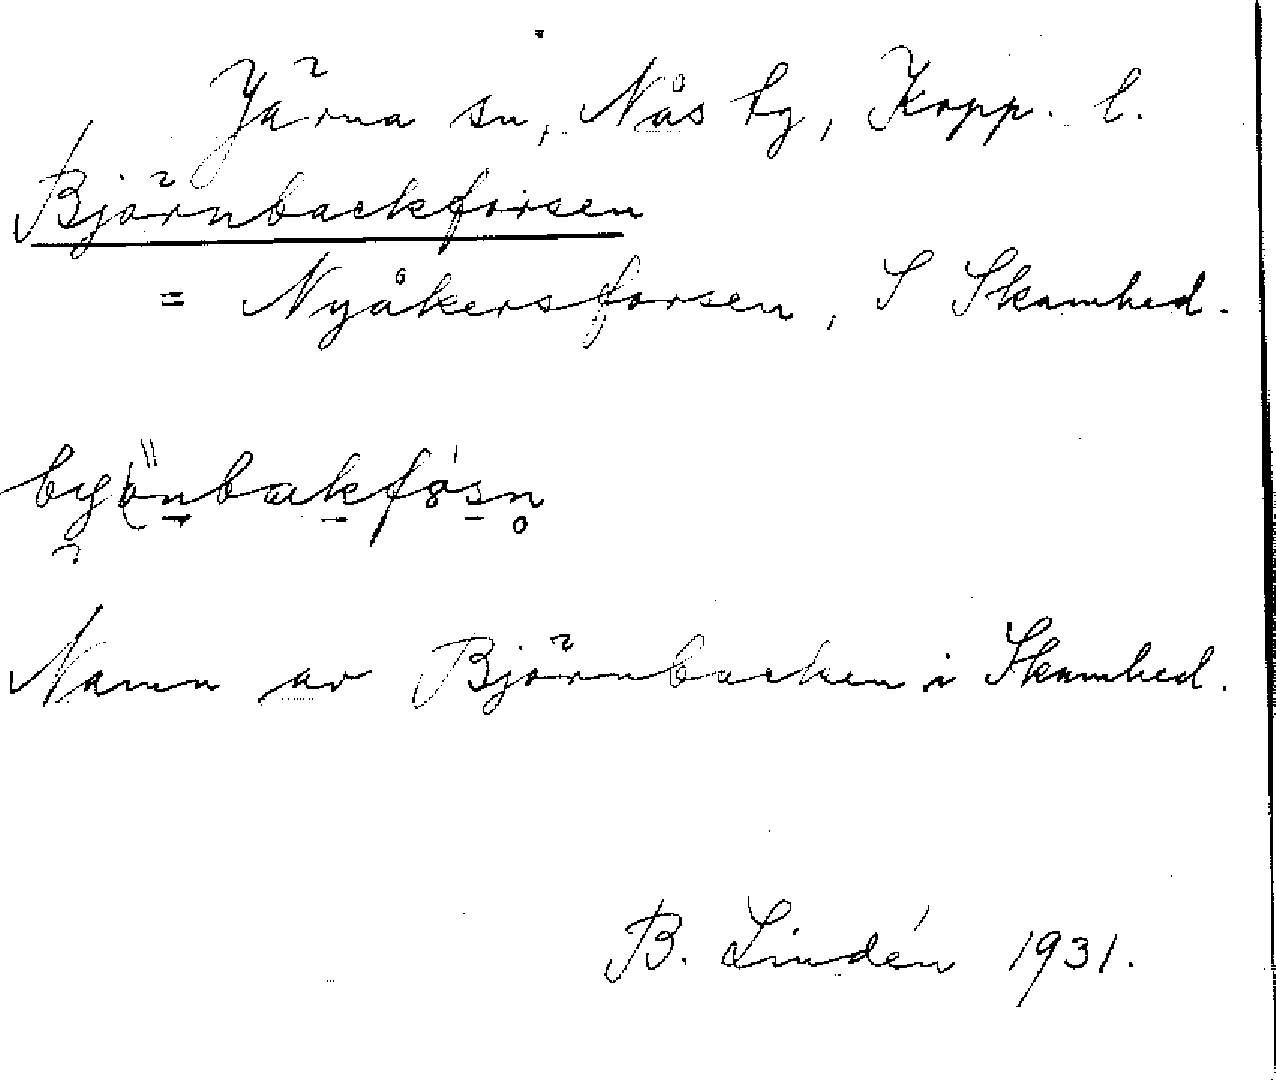 Järna sn, Nås tg, Kopp. l.
Björnbackforsen
= Nyåkersforsen, S Skamhed.
Namn av Björnbacken i Skamhed.
B. Lindén 1931.